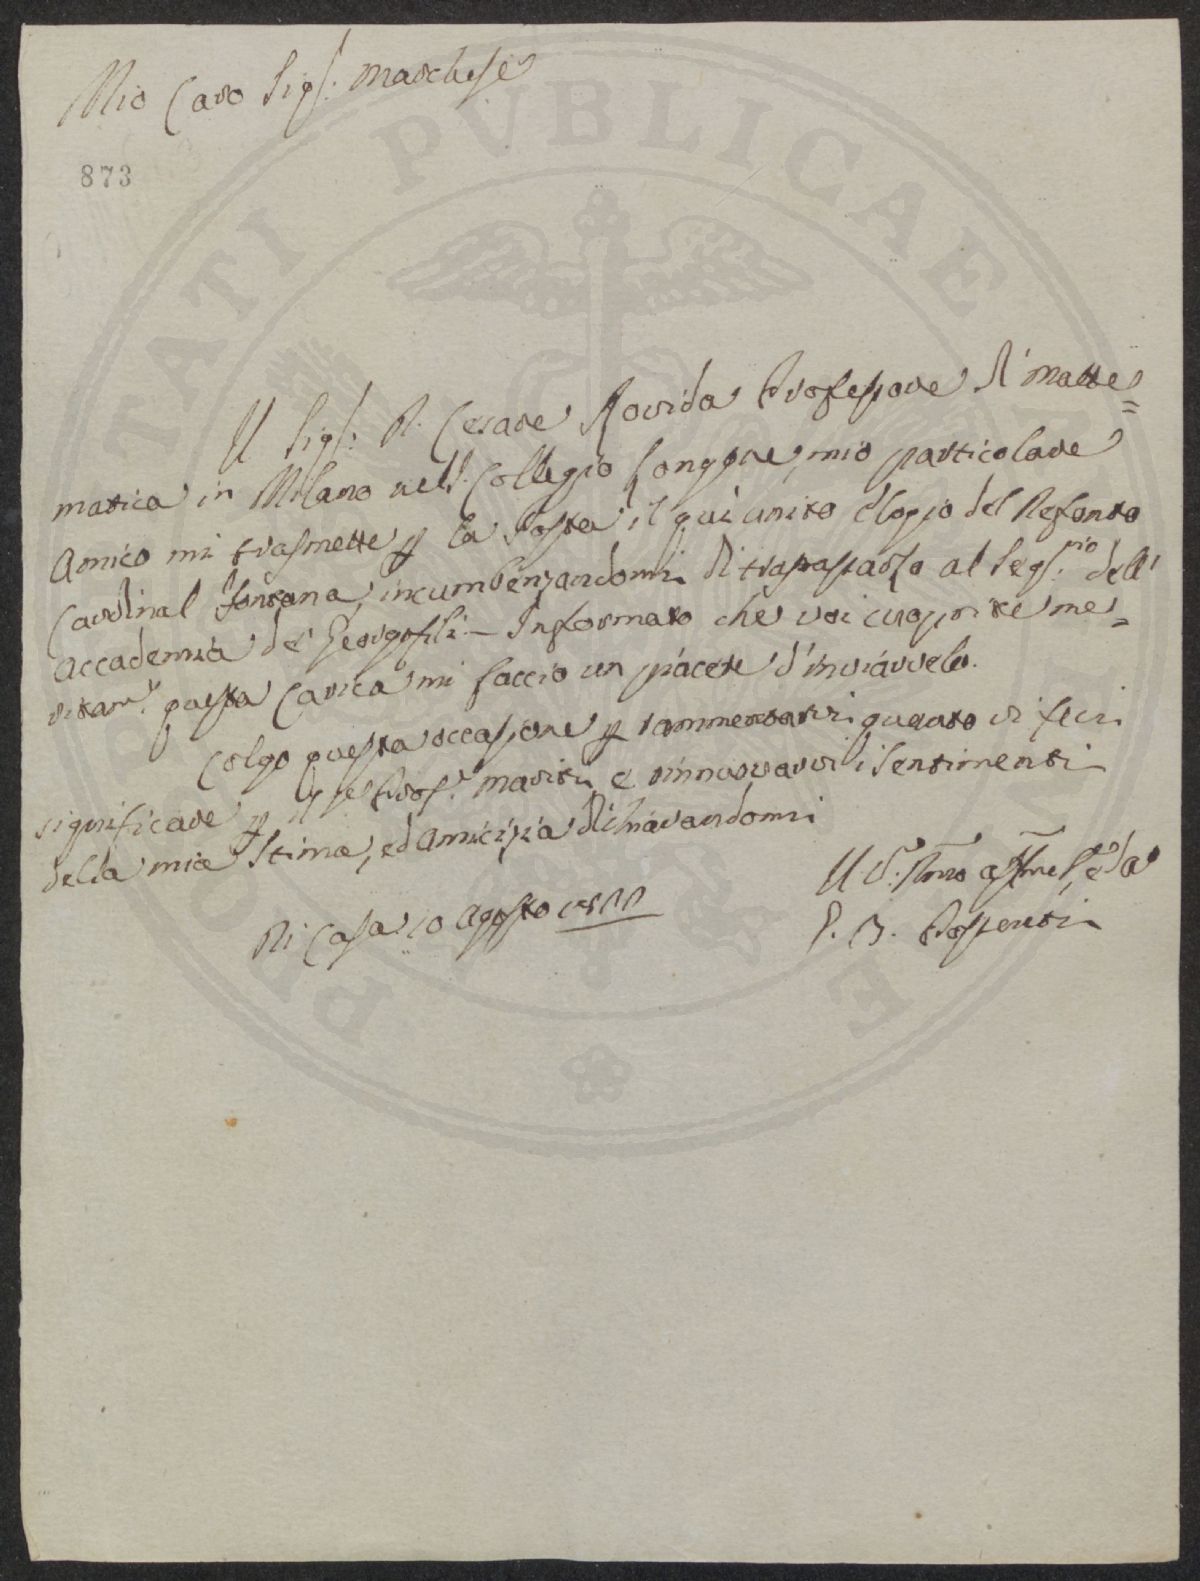 Mio Caro Sig.r Marchese
873
Il Sig.r D. Cesare Rovida Professore di Matte=
matica in Milano nell. Collegio Longone, mio particolare
Amico mi trasmette p la Posta il quì unito Elogio del Defonto
Cardinal Fontana, incumbenzandomi di trapassarlo al Seg.rio dell'
Accademia de' Georgofili — Informato che voi cuoprite me=
ritam.e questa Carica mi faccio un piacere d'inviarvelo.
Colgo questa occasione p rammentarvi quanto vi feci
significare p il Prof.e e rinnovarvi i sentimenti
della mia stima, ed amicizia dichiarandomi
Di Casa 10 Agosto 1822
Il V.
G. B. Pospenti
PVBLICAE